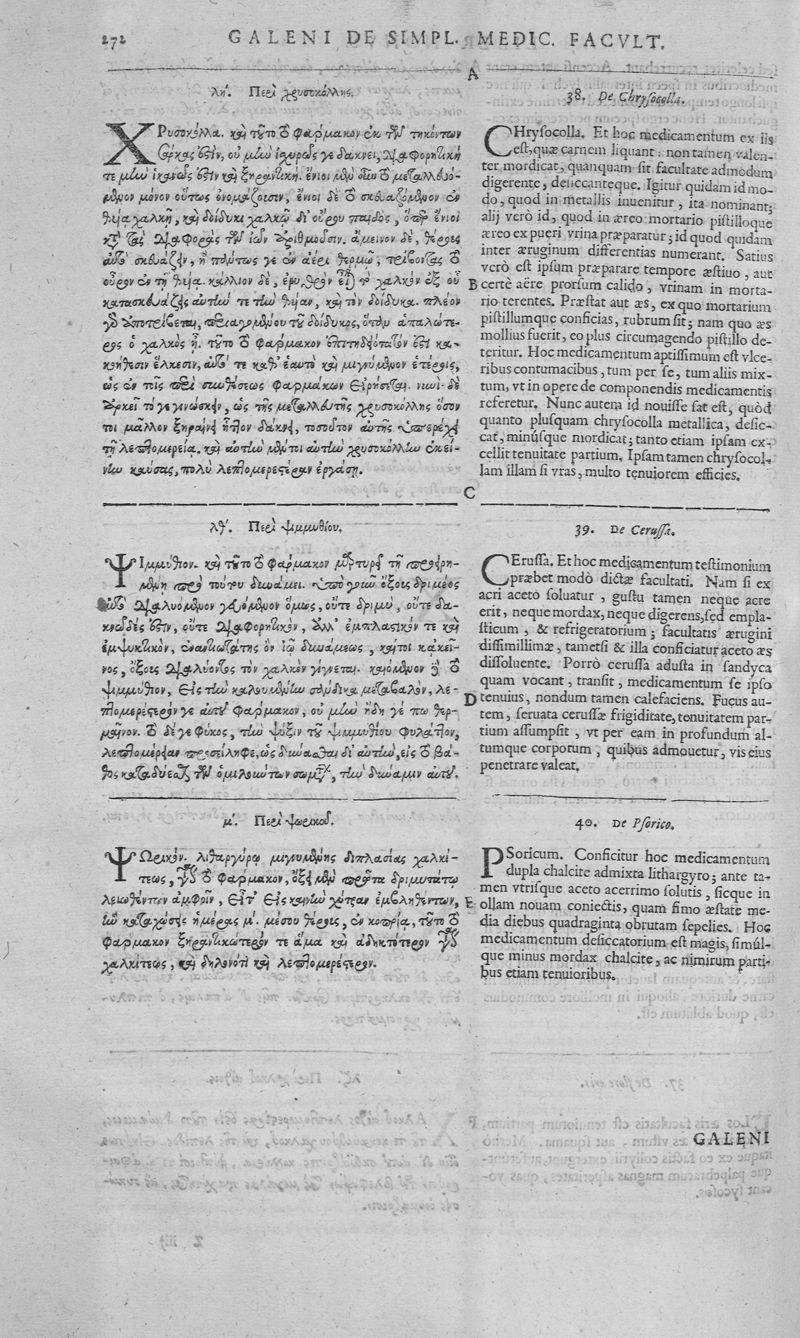 272 GALENI DE SIMPL. MEDIC. FACVLT.
A
λη΄. Περὶ χρυσοκόλλης.
ΧΡυσοκόλλα. καὶ τοῦτο τὸ φάρμακον ἐκ τῶν τηκόντων
σάρκας ἐστὶν, οὐ μὴν ἰσχυρῶς γε δάκνει, διαφορητικὴ
τε μὴν ἱκανῶς ἐστὶν καὶ ξηραντική. ἔνιοι μὲν οὖν τὸ μεταλλευό-
μενον μόνον οὕτως ὀνομάζουσιν, ἔνιοι δὲ τὸ σκευαζόμενον ἐν
θυίᾳ χαλκῇ, καὶ δοίδυκι χαλκῷ δι' οὔρου παιδὸς, ὅπερ ἔνιοι
κατὰ τὰς διαφορὰς τῶν ἰῶν ἀριθμοῦσιν. ἄμεινον δὲ, θέρους
αὐτὸ σκευάζειν, ἢ πάντως γε ἐν ἀέρι θερμῷ, τρίβοντας τὸ
οὖρον ἐν τῇ θυίᾳ. κάλλιον δὲ, ἐρυθρὸν εἶναι τὸ χαλκὸν ἐξ οὗ
κατασκευάζῃς αὐτήν τε τὴν θυίαν, καὶ τὸν δοίδυκα. πλέον
γὰρ ἀποτρίβεται, περιαγομένου τοῦ δοίδυκος, ὅταν ἁπαλώτε-
ρος ὁ χαλκὸς ᾖ. τοῦτο τὸ φάρμακον ἐπιτηδειότατόν ἐστι κα-
κοήθεσιν ἕλκεσιν, αὐτό τε καθ' ἑαυτὸ καὶ μιγνύμενον ἑτέροις,
ὡς ἐν τοῖς περὶ συνθέσεως φαρμάκων εἰρήσεται. νυνὶ δὲ
ἀρκεῖ τὸ γινώσκειν, ὡς τῆς μεταλλευτῆς χρυσοκόλλης ὅσον
τοι μᾶλλον ξηραίνει ἧττον δάκνει, τοσοῦτον αὐτῆς ὑπερέχει
τῇ λεπτομερείᾳ. καὶ αὐτὴν μέντοι αὐτὴν χρυσοκόλλην ἐκεί-
νην καύσας, πολὺ λεπτομερεστέραν ἐργάσῃ.
38. De Chrysocolla.
CHrysocolla. Et hoc medicamentum ex iis
est, quæ carnem liquant: non tamen valen-
ter mordicat, quanquam sit facultate admodum
digerente, desiccanteque. Igitur quidam id mo-
do, quod in metallis inuenitur, ita nominant;
alij verò id, quod in æreo mortario pistilloque
æreo ex pueri vrina præparatur; id quod quidam
inter æruginum differentias numerant. Satius
verò est ipsum præparare tempore æstiuo, aut
B certè aëre prorsum calido, vrinam in morta-
rio terentes. Præstat aut æs, ex quo mortarium
pistillumque conficias, rubrum sit; nam quo æs
mollius fuerit, eo plus circumagendo pistillo de-
teritur. Hoc medicamentum aptissimum est vlce-
ribus contumacibus, tum per se, tum aliis mix-
tum, vt in opere de componendis medicamentis
referetur. Nunc autem id nouisse sat est, quòd
quanto plusquam chrysocolla metallica, desic-
cat, minúsque mordicat; tanto etiam ipsam ex-
cellit tenuitate partium. Ipsam tamen chrysocol-
lam illam si vras, multo tenuiorem efficies.
C
λθ΄. Περὶ ψιμμυθίου.
ΨΙμμύθιον. καὶ τοῦτο τὸ φάρμακον μαρτυρεῖ τῇ προειρη-
μένῃ πρὸ τούτου δυνάμει. ὑπὸ γοῦν ὄξους δριμέος
αὐτὸ διαλυόμενον γευόμενον ὅμως, οὔτε δριμὺ, οὔτε δα-
κνῶδές ἐστιν, οὔτε διαφορητικὸν, ἀλλ' ἐμπλαστικόν τε καὶ
ἐμψυκτικὸν, ἐναντιώτατης ὂν ἰῷ δυνάμεως, καίτοι κἀκεῖ-
νος, ὄξους διαλύοντος τὸν χαλκὸν γίγνεται. καιόμενον δὲ τὸ
ψιμμύθιον, εἰς τὴν καλουμένην σάνδικα μεταβαλὸν, λε-
πτομερέστερόν γε αὐτοῦ φάρμακον, οὐ μὴν ἤδη γέ πω θερ-
μαῖνον. τὸ δέ γε φῦκος, τὴν ψύξιν τοῦ ψιμμυθίου φυλάττον,
λεπτομέρειαν προσείληφε, ὡς δύνασθαι δι' αὐτὴν, εἰς τὸ βά-
θος καταδύεσθαι τῶν ὁμιλούντων σωμάτων, τὴν δύναμιν αὐτοῦ.
39. De Cerussa.
CErussa. Et hoc medicamentum testimonium
præbet modò dictæ facultati. Nam si ex
acri aceto soluatur, gustu tamen neque acre
erit, neque mordax, neque digerens, sed empla-
sticum, & refrigeratorium; facultatis ærugini
dissimillimæ, tametsi & illa conficiatur aceto æs
dissoluente. Porrò cerussa adusta in sandyca
quam vocant, transit, medicamentum se ipso
D tenuius, nondum tamen calefaciens. Fucus au-
tem, seruata cerussæ frigiditate, tenuitatem par-
tium assumpsit, vt per eam in profundum al-
tumque corporum, quibus admouetur, vis eius
penetrare valeat.
μ΄. Περὶ ψωρικοῦ.
ΨΩρικόν. λιθαργύρῳ μιγνυμένης διπλασίας χαλκί-
τεως, γίνεται τὸ φάρμακον, ὄξει μὲν πρῶτα δριμυτάτῳ
λειωθέντων ἀμφοῖν, εἶτ' εἰς καινὴν χύτραν ἐμβληθέντων,
ἣν καταχώσεις ἡμέρας μ΄. μέσου θέρους, ἐν κοπρίᾳ, τοῦτο τὸ
φάρμακον ξηραντικώτερόν τε ἅμα καὶ ἀδηκτότερον γίνεται
χαλκίτεως, καὶ δηλονότι καὶ λεπτομερέστερον.
40. De Psorico.
PSoricum. Conficitur hoc medicamentum
dupla chalcite admixta lithargyro; ante ta-
men vtrisque aceto acerrimo solutis, sicque in
E ollam nouam coniectis, quam fimo æstate me-
dia diebus quadraginta obrutam sepelies. Hoc
medicamentum desiccatorium est magis, simúl-
que minus mordax chalcite, ac nimirum parti-
bus etiam tenuioribus.
F
GALENI